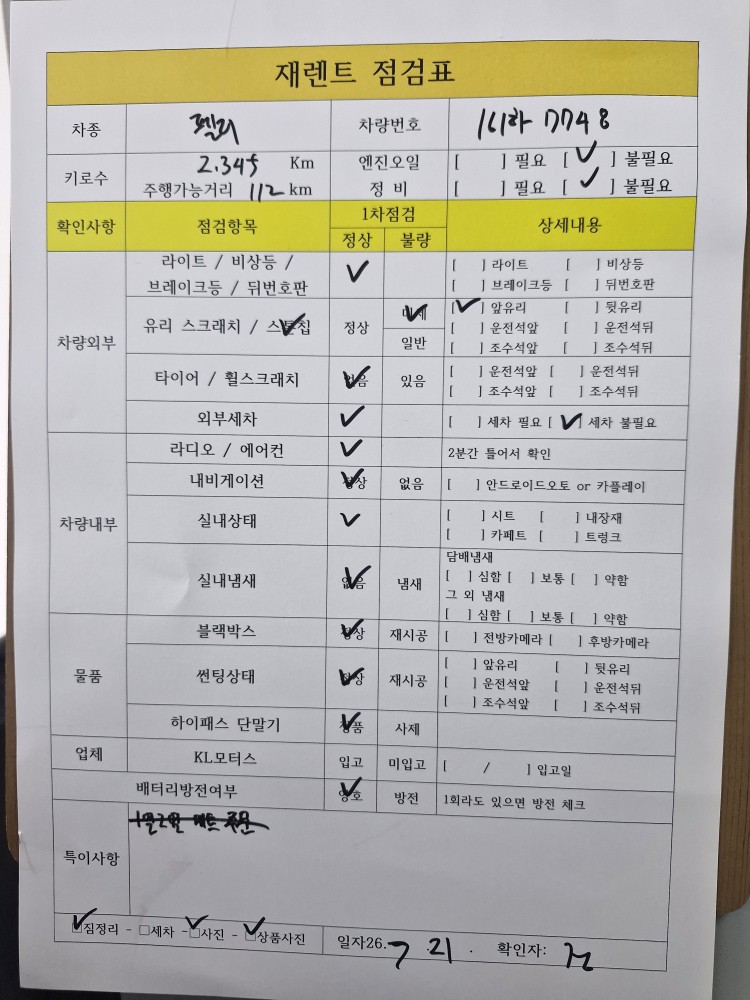 재렌트 점검표
차종 펠리 차량번호 161하 7748
키로수 2.345 Km 엔진오일 [ ] 필요 [ ✓ ] 불필요
주행가능거리 112 km 정 비 [ ] 필요 [ ✓ ] 불필요
확인사항 점검항목 1차점검 상세내용
정상 불량
차량외부
라이트 / 비상등 / ✓ [ ] 라이트 [ ] 비상등
브레이크등 / 뒤번호판 [ ] 브레이크등 [ ] 뒤번호판
유리 스크래치 / 스톤칩 정상 ✓ [ ✓ ] 앞유리 [ ] 뒷유리
일반 [ ] 운전석앞 [ ] 운전석뒤
[ ] 조수석앞 [ ] 조수석뒤
타이어 / 휠스크래치 없음 ✓ 있음 [ ] 운전석앞 [ ] 운전석뒤
[ ] 조수석앞 [ ] 조수석뒤
외부세차 ✓ [ ] 세차 필요 [ ✓ ] 세차 불필요
차량내부
라디오 / 에어컨 ✓ 2분간 틀어서 확인
내비게이션 정상 ✓ 없음 [ ] 안드로이드오토 or 카플레이
실내상태 ✓ [ ] 시트 [ ] 내장재
[ ] 카페트 [ ] 트렁크
실내냄새 없음 ✓ 냄새 담배냄새
[ ] 심함 [ ] 보통 [ ] 약함
그 외 냄새
[ ] 심함 [ ] 보통 [ ] 약함
물품
블랙박스 정상 ✓ 재시공 [ ] 전방카메라 [ ] 후방카메라
썬팅상태 정상 ✓ 재시공 [ ] 앞유리 [ ] 뒷유리
[ ] 운전석앞 [ ] 운전석뒤
[ ] 조수석앞 [ ] 조수석뒤
하이패스 단말기 정품 ✓ 사제
업체 KL모터스 입고 미입고 [ / ] 입고일
배터리방전여부 양호 ✓ 방전 1회라도 있으면 방전 체크
특이사항
☑짐정리 - □세차 - ☑사진 - ☑상품사진 일자26. 7 . 21 . 확인자: